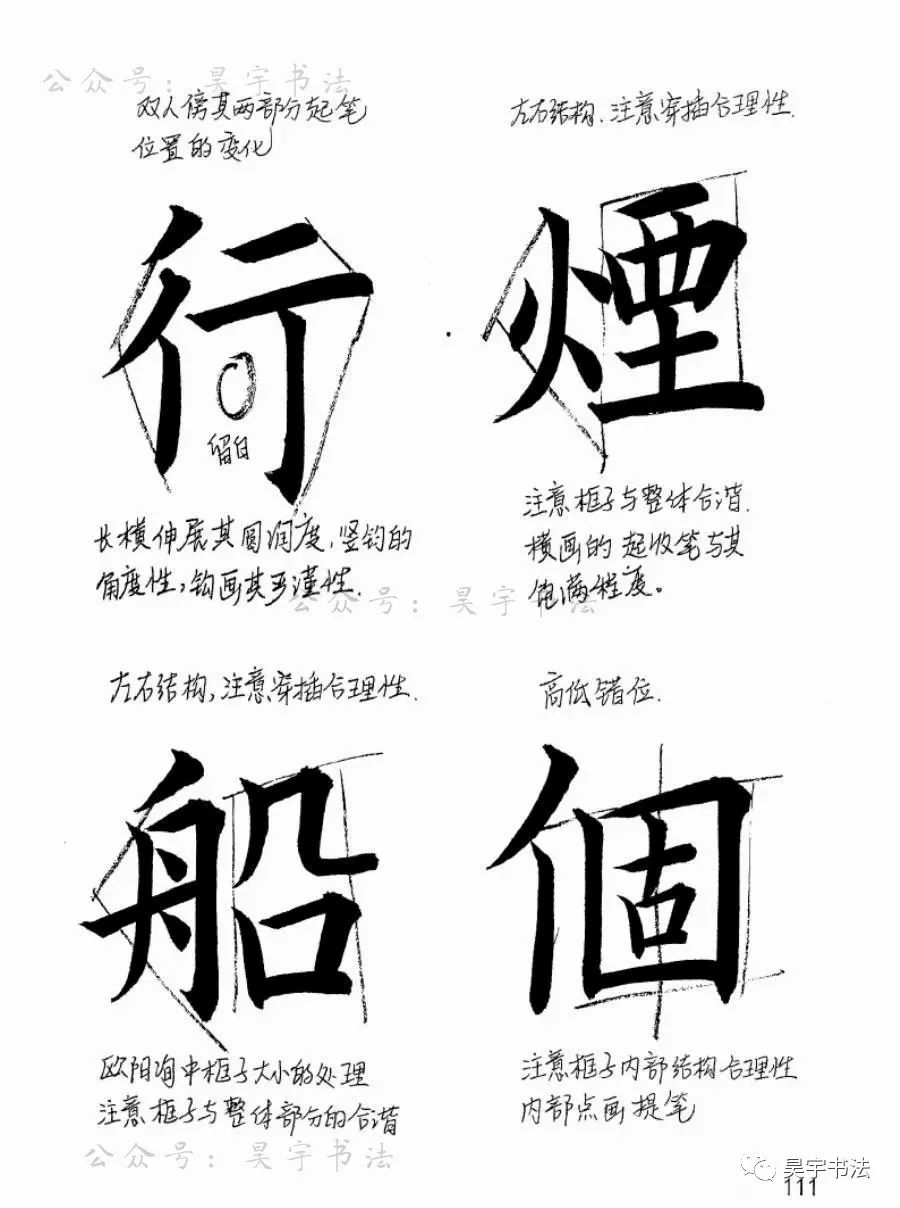 公众号：昊宇书法
双人傍其两部分起笔
位置的变化
行
留白
长横伸展其圆润度，竖钩的
角度性，钩画其严谨性.
左右结构、注意穿插合理性.
煙
注意框子与整体合谐.
横画的起收笔与其
饱满程度。
公众号：昊宇书法
左右结构，注意穿插合理性.
船
欧阳询中框子大小的处理
注意框子与整体部分的合谐
高低错位.
個
注意框子内部结构合理性
内部点画提笔
公众号：昊宇书法
昊宇书法
111